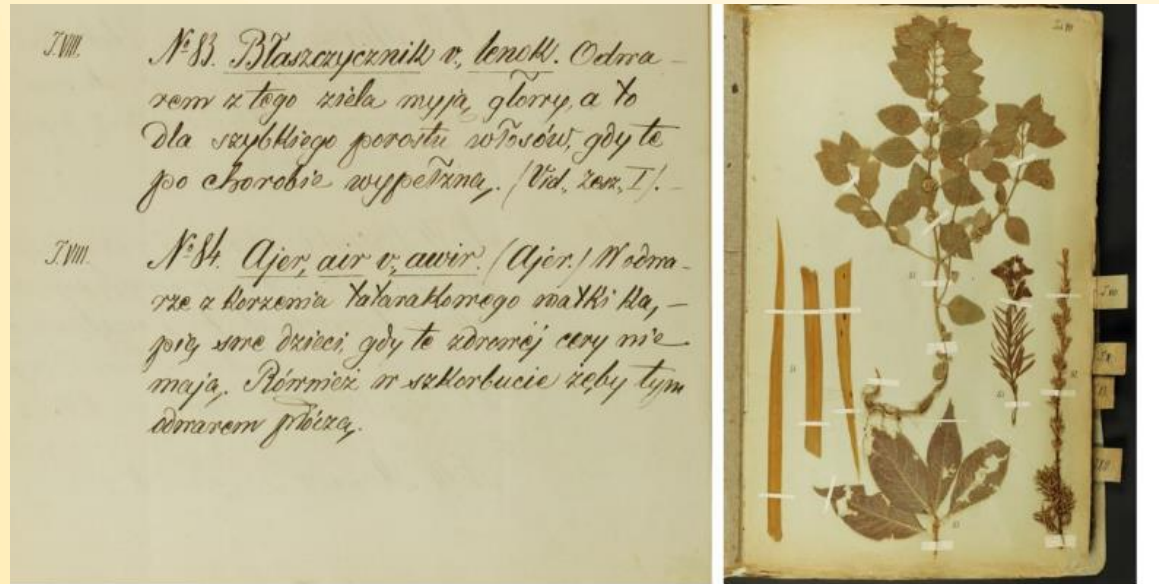 T.VIII. № 83. Błaszczycznik v. lenok. Odwa-
rem z tego ziela myją głowy, a to
dla szybkiego porostu włosów, gdy te
po chorobie wypełzną. (Vid. Zesz. I).
T.VIII. № 84. Ajer, air v. awir. (Ajer.) W odwa-
rze z korzenia tatarakowego matki ką-
pią swe dzieci, gdy te zdrowéj cery nie
mają. Również w szkorbucie zęby tym
odwarem płóczą.